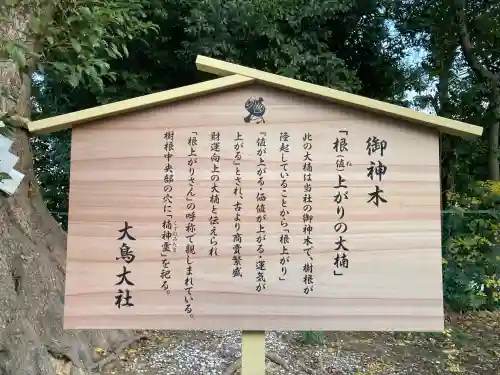 御神木
「根(値)上がりの大楠」
ね
此の大楠は当社の御神木で、樹根が
隆起していることから「根上がり」
『値が上がる・価値が上がる・運気が
上がる』とされ、古より商貴繁盛
財運向上の大楠と伝えられ
「根上がりさん」の呼称で親しまれている。
樹根中央部の穴に「楠神霊」を祀る。
くすのみたま
大鳥大社